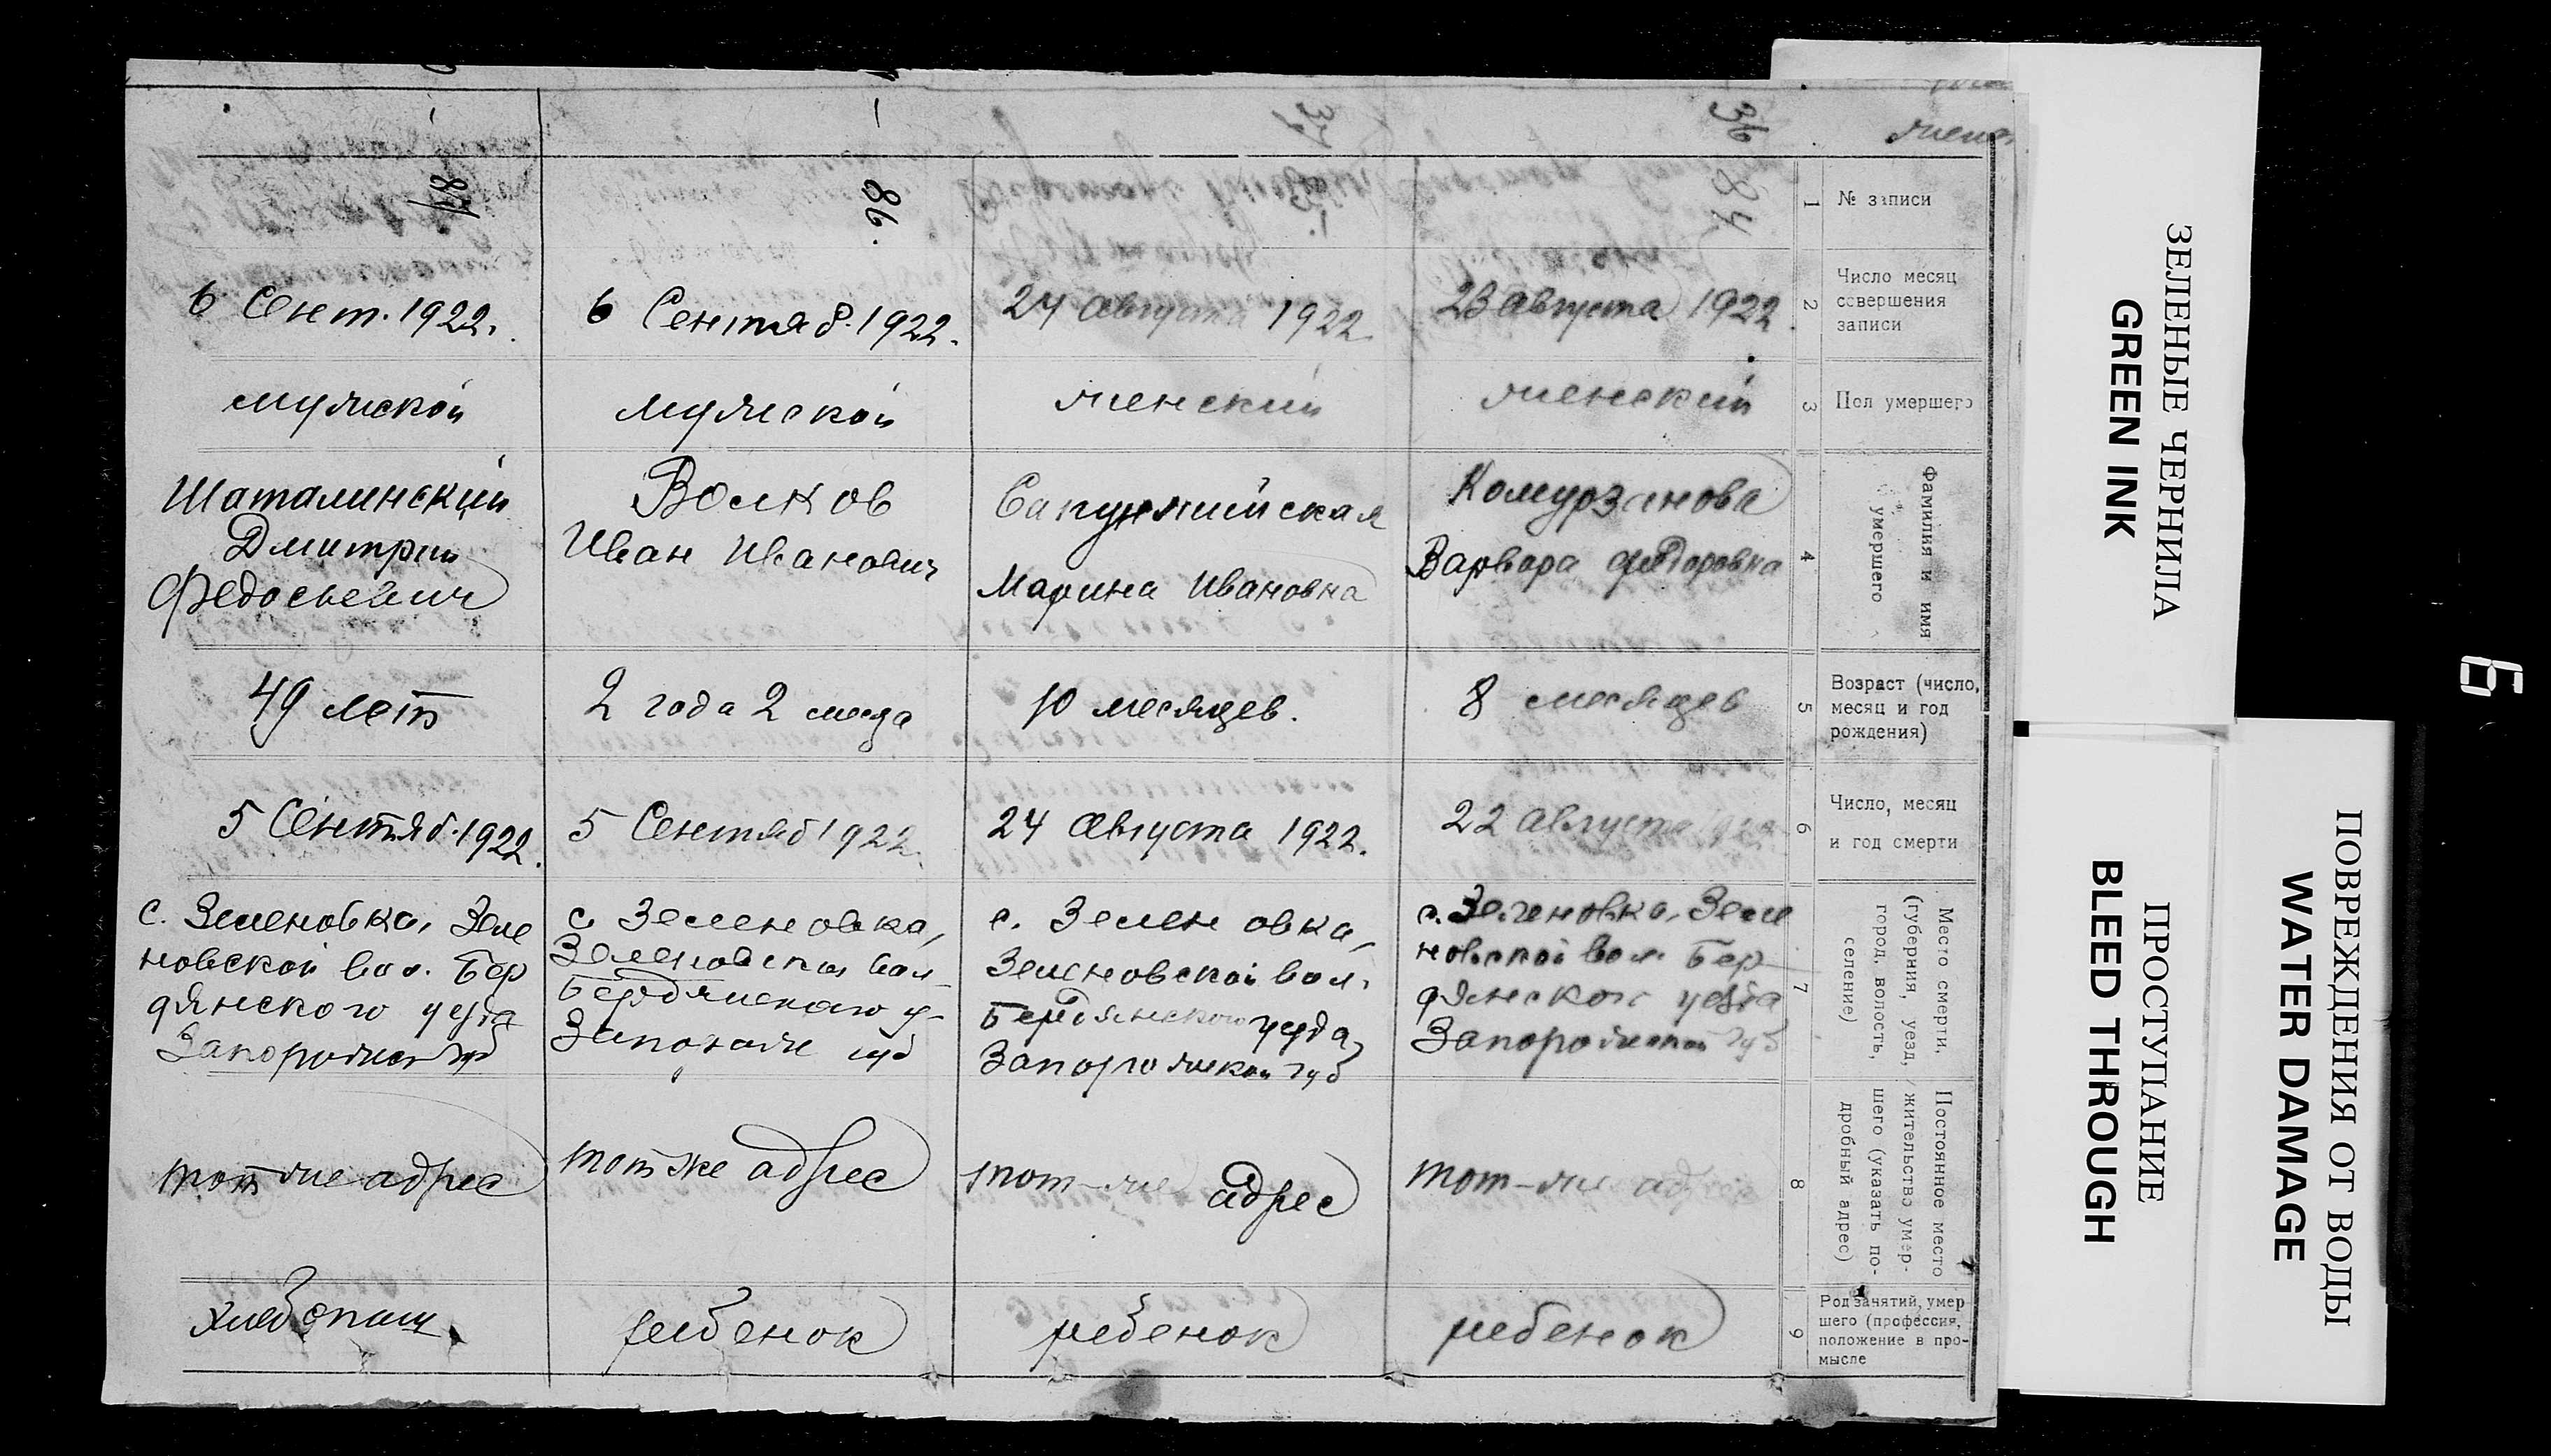 36
№ записи
1
84
Число месяц
совершения
записи
2
23 августа 1922.
Пол умершего
3
женский
Фамилия и имя
умершего
4
Комурзинова
Варвара Федоровна
Возраст (число,
месяц и год
рождения)
5
8 месяцев
Число, месяц
и год смерти
6
22 августа 1922
Место смерти,
(губерния, уезд,
город, волость,
селение)
7
с. Зеленовка, Зеле
новской вол. Бер
дянского уезда
Запорожской губ
Постоянное место
жительство умер-
шего (указать по-
дробный адрес)
8
тот-же адрес
Род занятий, умер
шего (профессия,
положение в про-
мысле
9
ребенок
37
85.
24 августа 1922.
женский
Марина Ивановна
10 месяцев.
24 августа 1922.
с. Зеленовка,
Зеленовской вол.
Бердянского уезда
Запорожской губ
тот-же адрес
ребенок
86.
6 Сентяб. 1922.
мужской
Волков
Иван Иванович
2 года 2 месяца
5 Сентяб 1922.
с. Зеленовка,
Зеленовской вол
Бердянского у-
губ
тот же адрес
ребенок
87
6 Сент. 1922.
мужской
Шаталинский
Дмитрий
Федосьевич
49 лет
5 Сентяб. 1922.
с. Зеленовка, Зеле
новской вол. Бер
дянского уезда
Запорожской губ
тот же адрес
хлебопашец
ЗЕЛЕНЫЕ ЧЕРНИЛА
GREEN INK
ПРОСТУПАНИЕ
BLEED THROUGH
ПОВРЕЖДЕНИЯ ОТ ВОДЫ
WATER DAMAGE
6